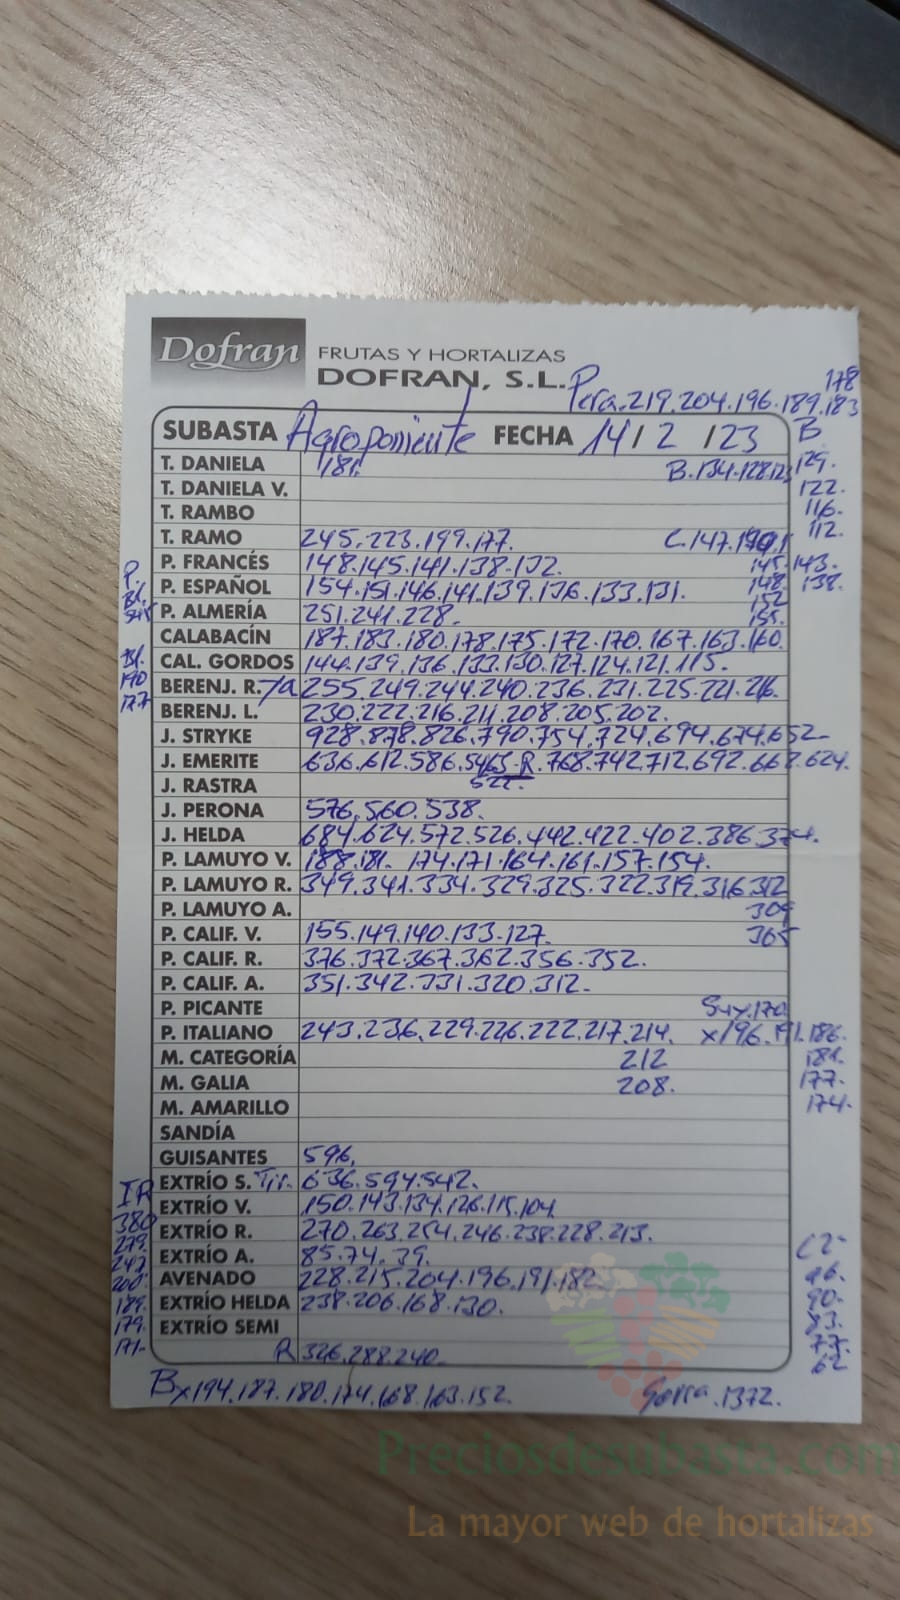 Dofran FRUTAS Y HORTALIZAS
DOFRAN, S.L. Pera.219.204.196.189.183
178
SUBASTA Agroponiente FECHA 14/2/23 B
T. DANIELA 181. B.134.128.123 129.
T. DANIELA V. 122.
T. RAMBO 116.
T. RAMO 245.223.199.177. C.147. 112.
P. FRANCÉS 148.145.141.138.132. 145.143.
P. P. ESPAÑOL 154.151.146.141.139.136.133.131. 148. 138.
Bl. 152
P. ALMERÍA 251.241.228. 155.
CALABACÍN 187.183.180.178.175.172.170.167.163.160.
Bl. CAL. GORDOS 144.139.136.133.130.127.124.121.115.
190 BERENJ. R. 255.249.244.240.236.231.225.221.216.
177 BERENJ. L. 230.222.216.211.208.205.202.
J. STRYKE 928.878.826.790.754.724.694.674.652-
J. EMERITE 636.612.586.546 R.768.742.712.692.668.624.
J. RASTRA 522.
J. PERONA 576.560.538.
J. HELDA 684.624.572.526.442.422.402.386.374.
P. LAMUYO V. 188.181. 174.171.164.161.157.154.
P. LAMUYO R. 349.341.334.329.325.322.319.316.312
P. LAMUYO A. 309
P. CALIF. V. 155.149.140.133.127. 305
P. CALIF. R. 376.372.367.362.356.352.
P. CALIF. A. 351.342.331.320.312-
P. PICANTE Sux.170
P. ITALIANO 243.236.229.226.222.217.214. x/196.191.186.
M. CATEGORÍA 212 181.
M. GALIA 208. 177.
M. AMARILLO 174.
SANDÍA
GUISANTES 596.
EXTRÍO S. Tir. 636.594.542.
IR EXTRÍO V. 150.143.134.126.115.104
380 EXTRÍO R. 270.263.254.246.238.228.213.
279. EXTRÍO A. 85.74.39. C2-
247. AVENADO 228.215.204.196.191.182 96.
200. EXTRÍO HELDA 238.206.168.130. 90.
189. EXTRÍO SEMI 83.
179. 77.
171- R 326.288.240. 62
Bx194.187.180.174.168.163.152. Gorra.1372.
Preciosdesubasta.com
La mayor web de hortalizas